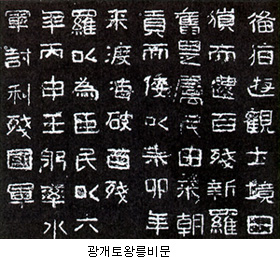 備猶遊觀土境
獵而還百殘新羅
舊是屬民由來朝
貢而倭以辛卯年
來渡海破百殘
羅以為臣民以六
年丙申王躬率水
軍討利殘國軍
광개토왕릉비문